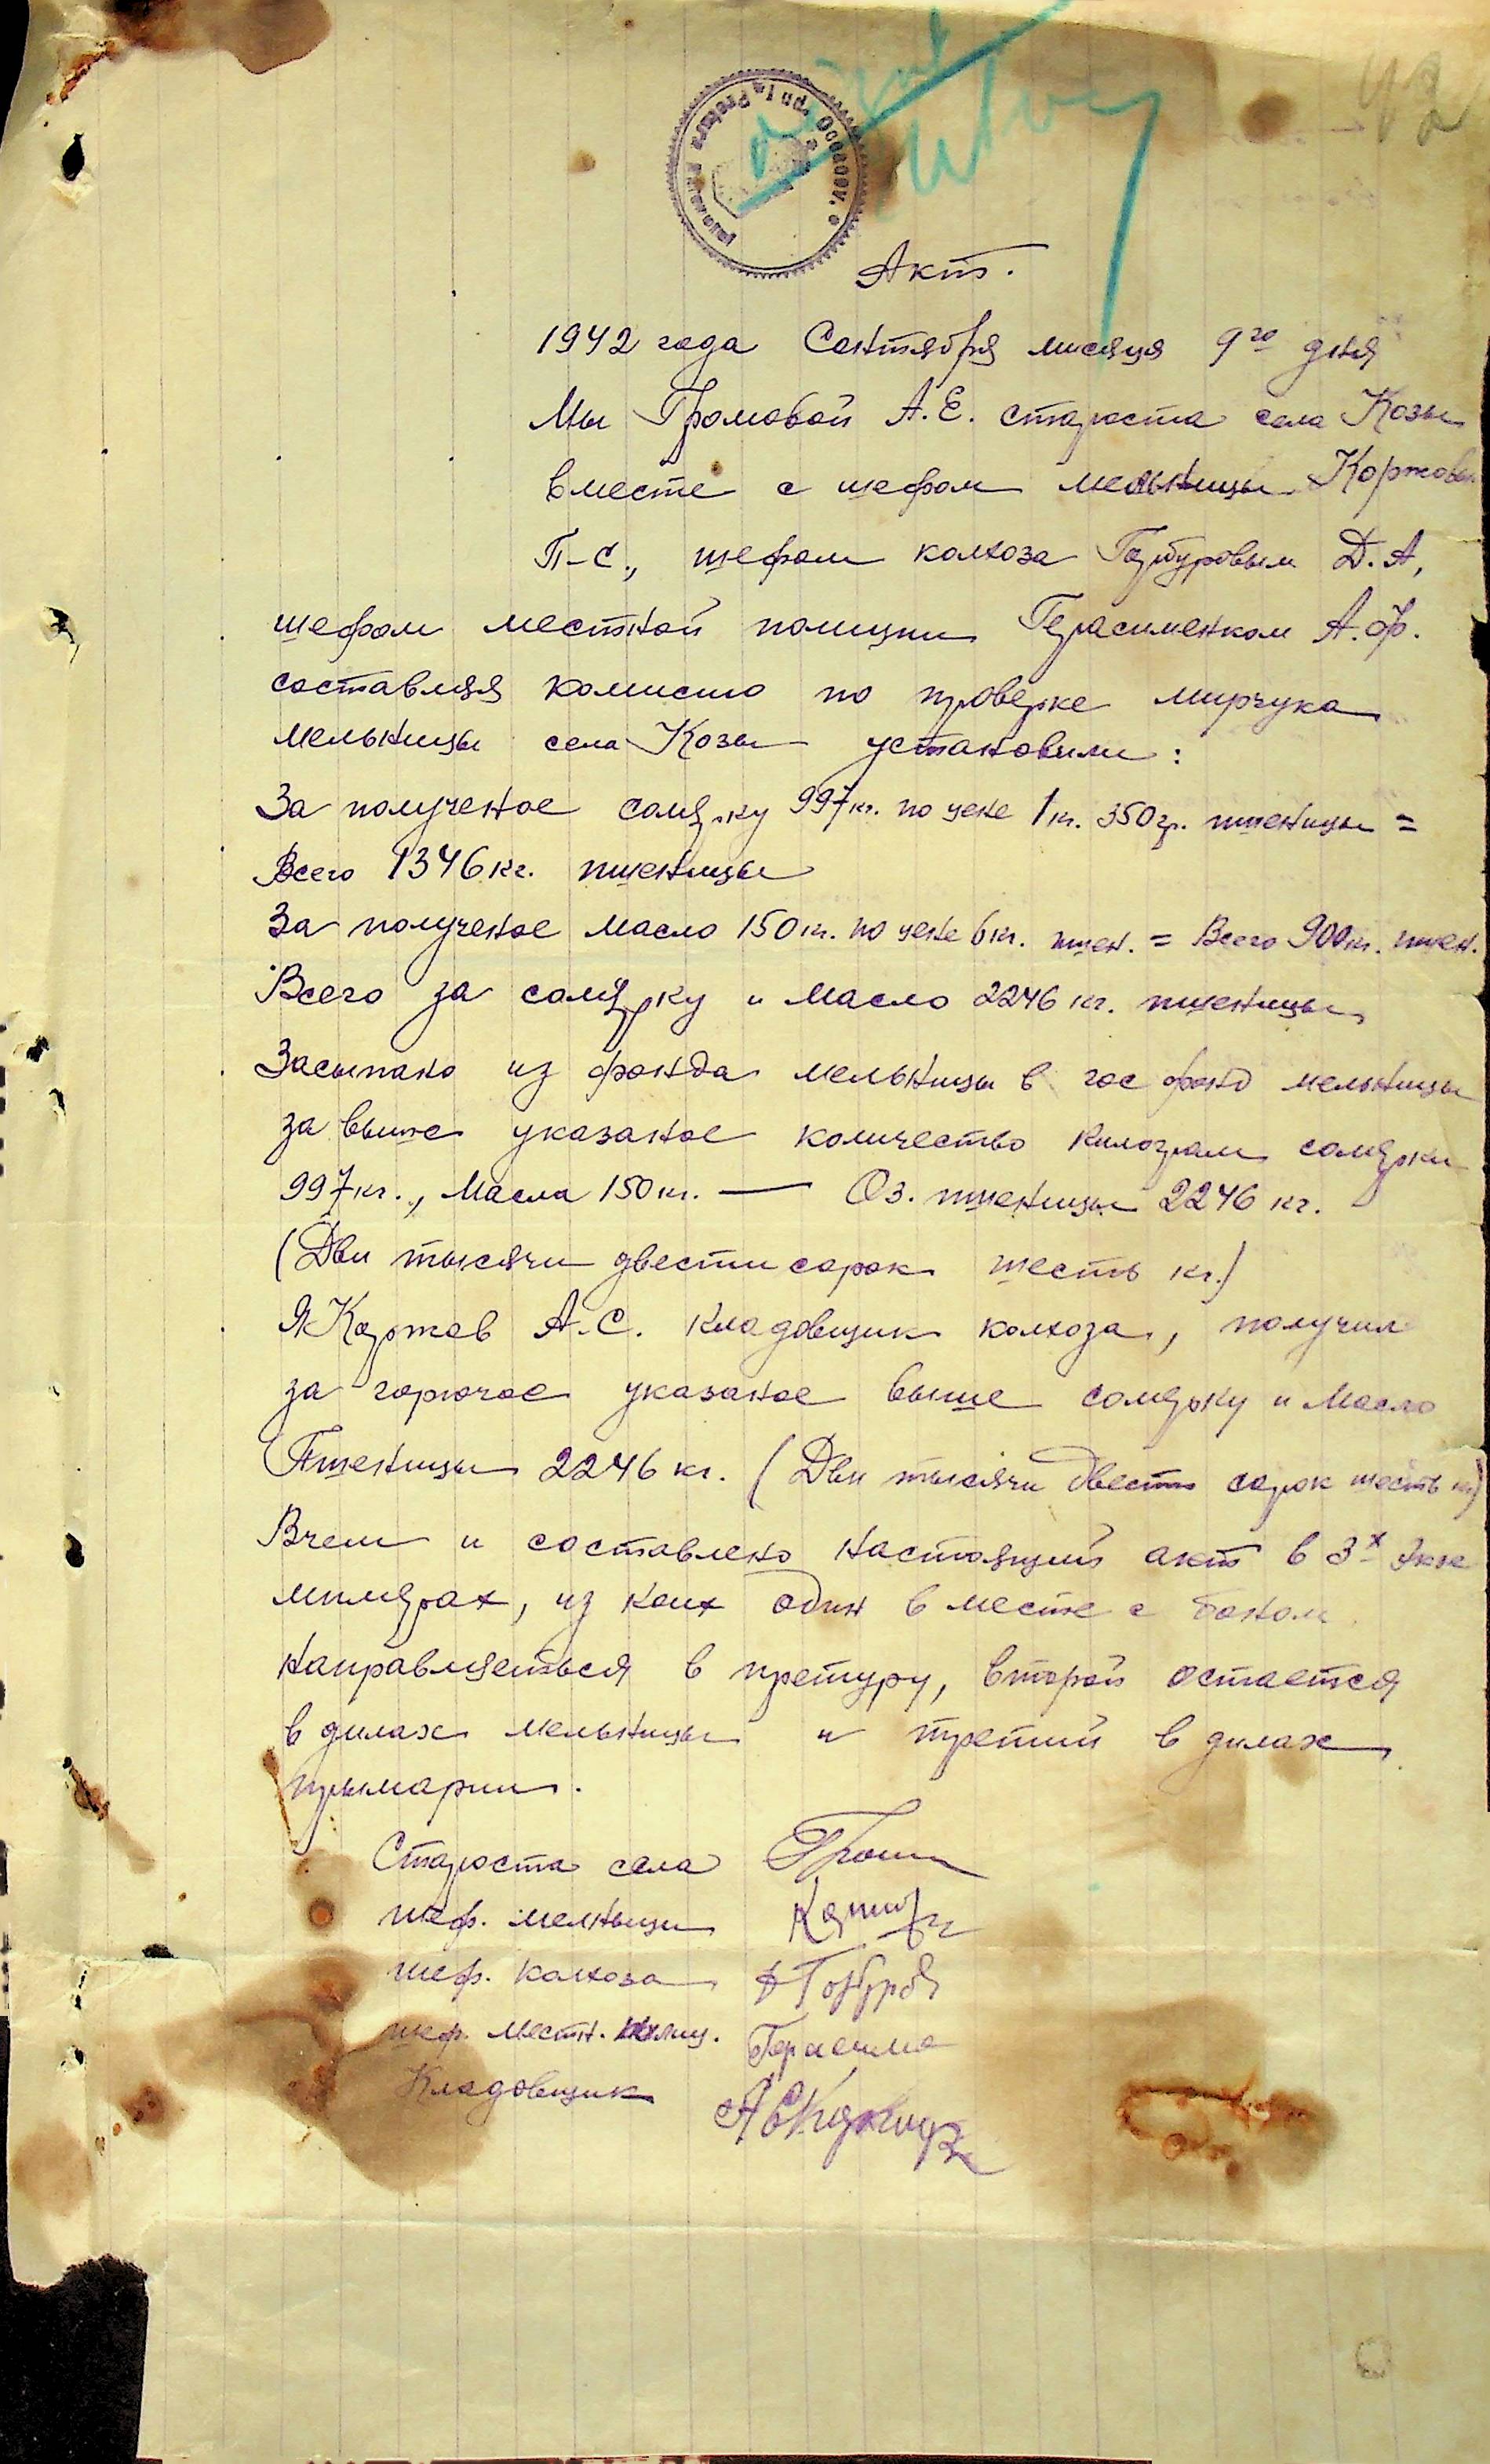 42
Акт.
1942 года Сентября мисяця 9го дня
Мы Громовой А.Е. староста села Козы
вместе с шефом мельницы Коржовым
П-С., шефом колхоза Гозбуровым Д.А,
шефом местной полиции Герасименком А.Ф.
составляя комисию по проверке мирчука
мельницы села Козы установили:
За полученое солярку 997кг. по цене 1кг. 350гр. пшеницы =
Всего 1346кг. пшеницы
За полученое масло 150кг. по цене 6кг. пшен. = Всего 900кг. пшен.
Всего за солярку и масло 2246 кг. пшеницы
Засыпано из фонда мельницы в гос фонд мельницы
за выше указаное количество килограм солярки
997кг., Масла 150кг. — Оз. пшеницы 2246 кг.
(Две тысячи двести сорок шесть кг.)
Я Коржов А.С. кладовщик колхоза, получил
за горючое указаное выше солярку и масло
Пшеницы 2246 кг. (Две тысячи двести сорок шесть кг)
Вчем и составлено настоящий акт в 3х экзе
милярах, из коих один в месте с боном
направляеться в претуру, второй остается
в дилах мельницы и третий в дилах
примарии.
Староста села
шеф. мелницы
шеф. колхоза
шеф. местн. полиц. Герасиме
Кладовщик